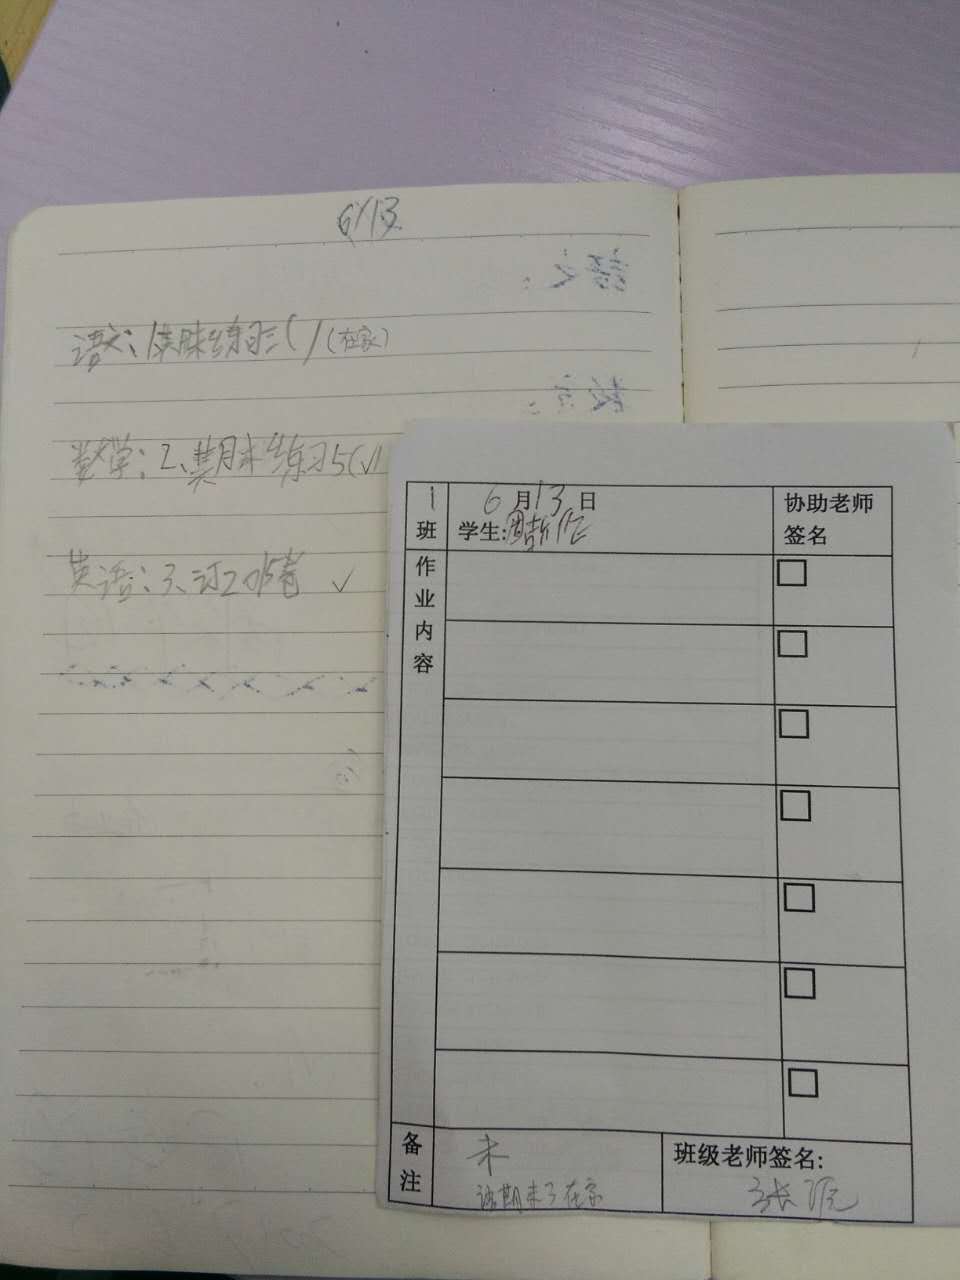 6/13
语文：1、期末练习三( )(在家)
数学：2、期末练习5(√)
英语：3、订20隋 √
1班
6月13日
学生:周
协助老师签名
作业内容
备注
未
语期末3在家
班级老师签名:
张